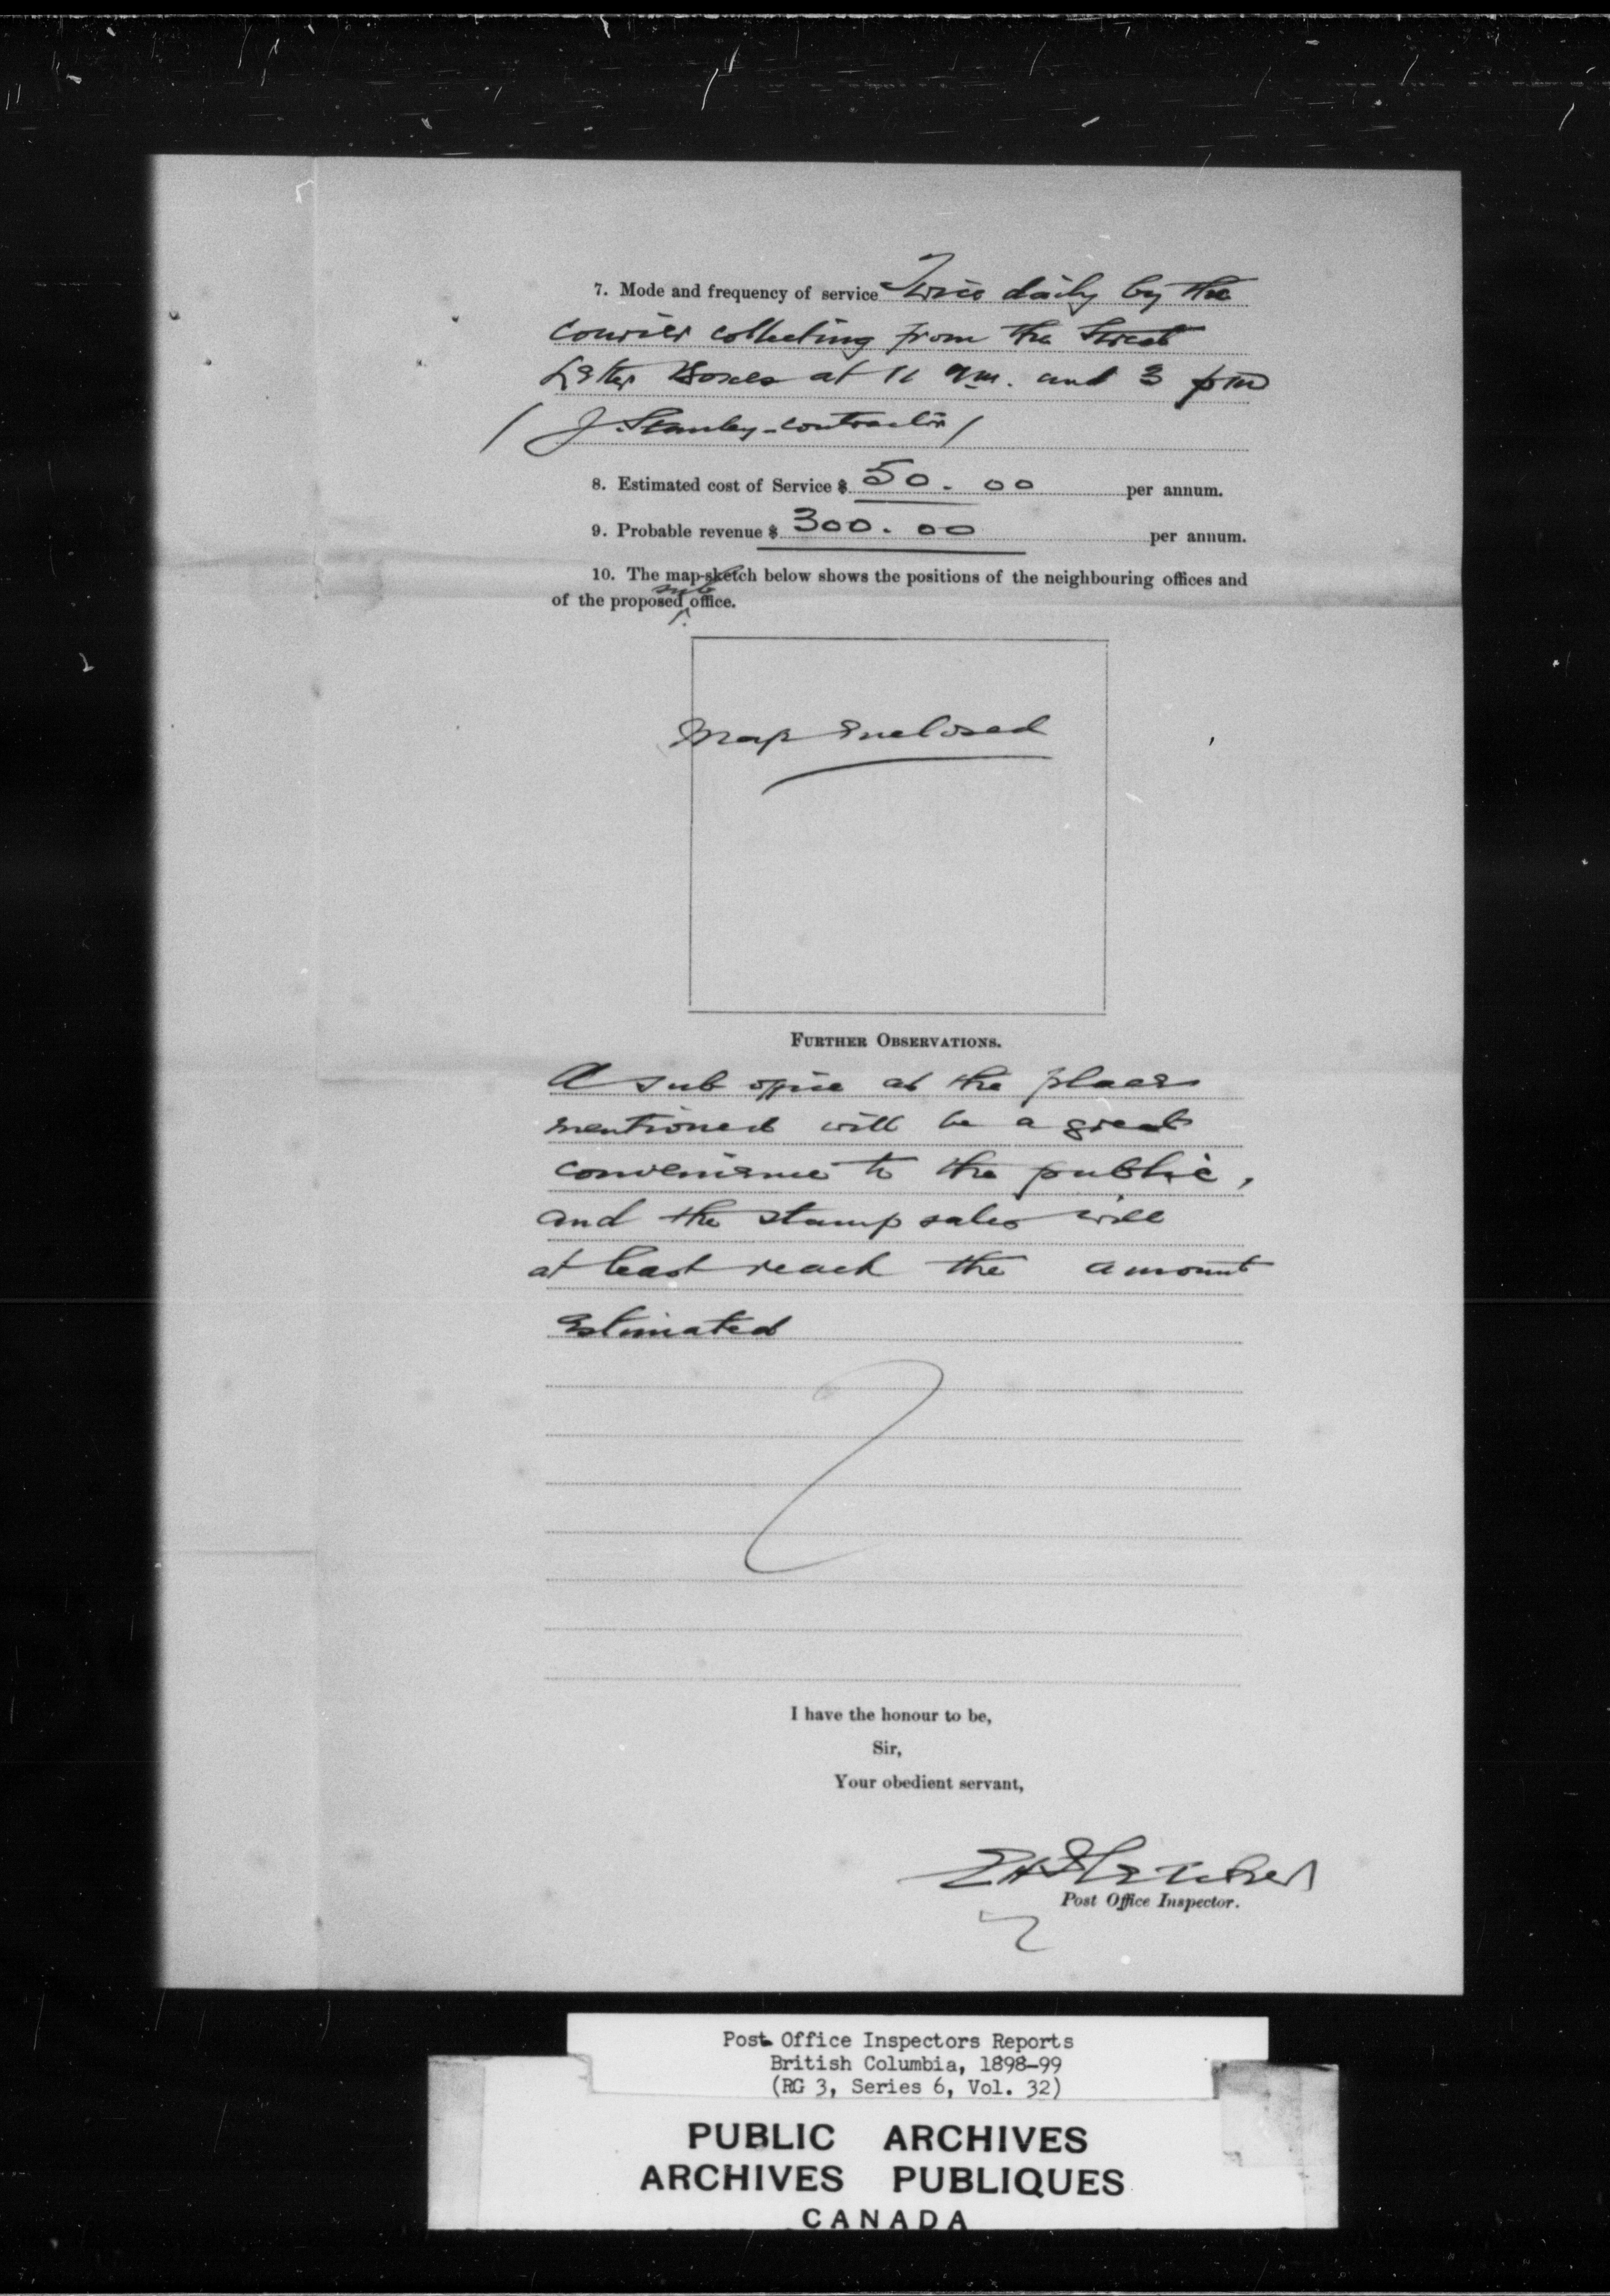 7. Mode and frequency of service Twice daily by the
courier collecting from the Street
Letter Boxes at 11 a.m. and 3 pm
( J. Stanley - contractor )
8. Estimated cost of Service $ 50.00 per annum.
9. Probable revenue $ 300.00 per annum.
10. The map-sketch below shows the positions of the neighbouring offices and
of the proposed sub office.
Map Enclosed
FURTHER OBSERVATIONS.
A sub office at the places
mentioned will be a great
convenience to the public,
and the stamp sales will
at least reach the amount
Estimated
I have the honour to be,
Sir,
Your obedient servant,
EH Fletcher
Post Office Inspector.
Post Office Inspectors Reports
British Columbia, 1898-99
(RG 3, Series 6, Vol. 32)
PUBLIC ARCHIVES
ARCHIVES PUBLIQUES
CANADA